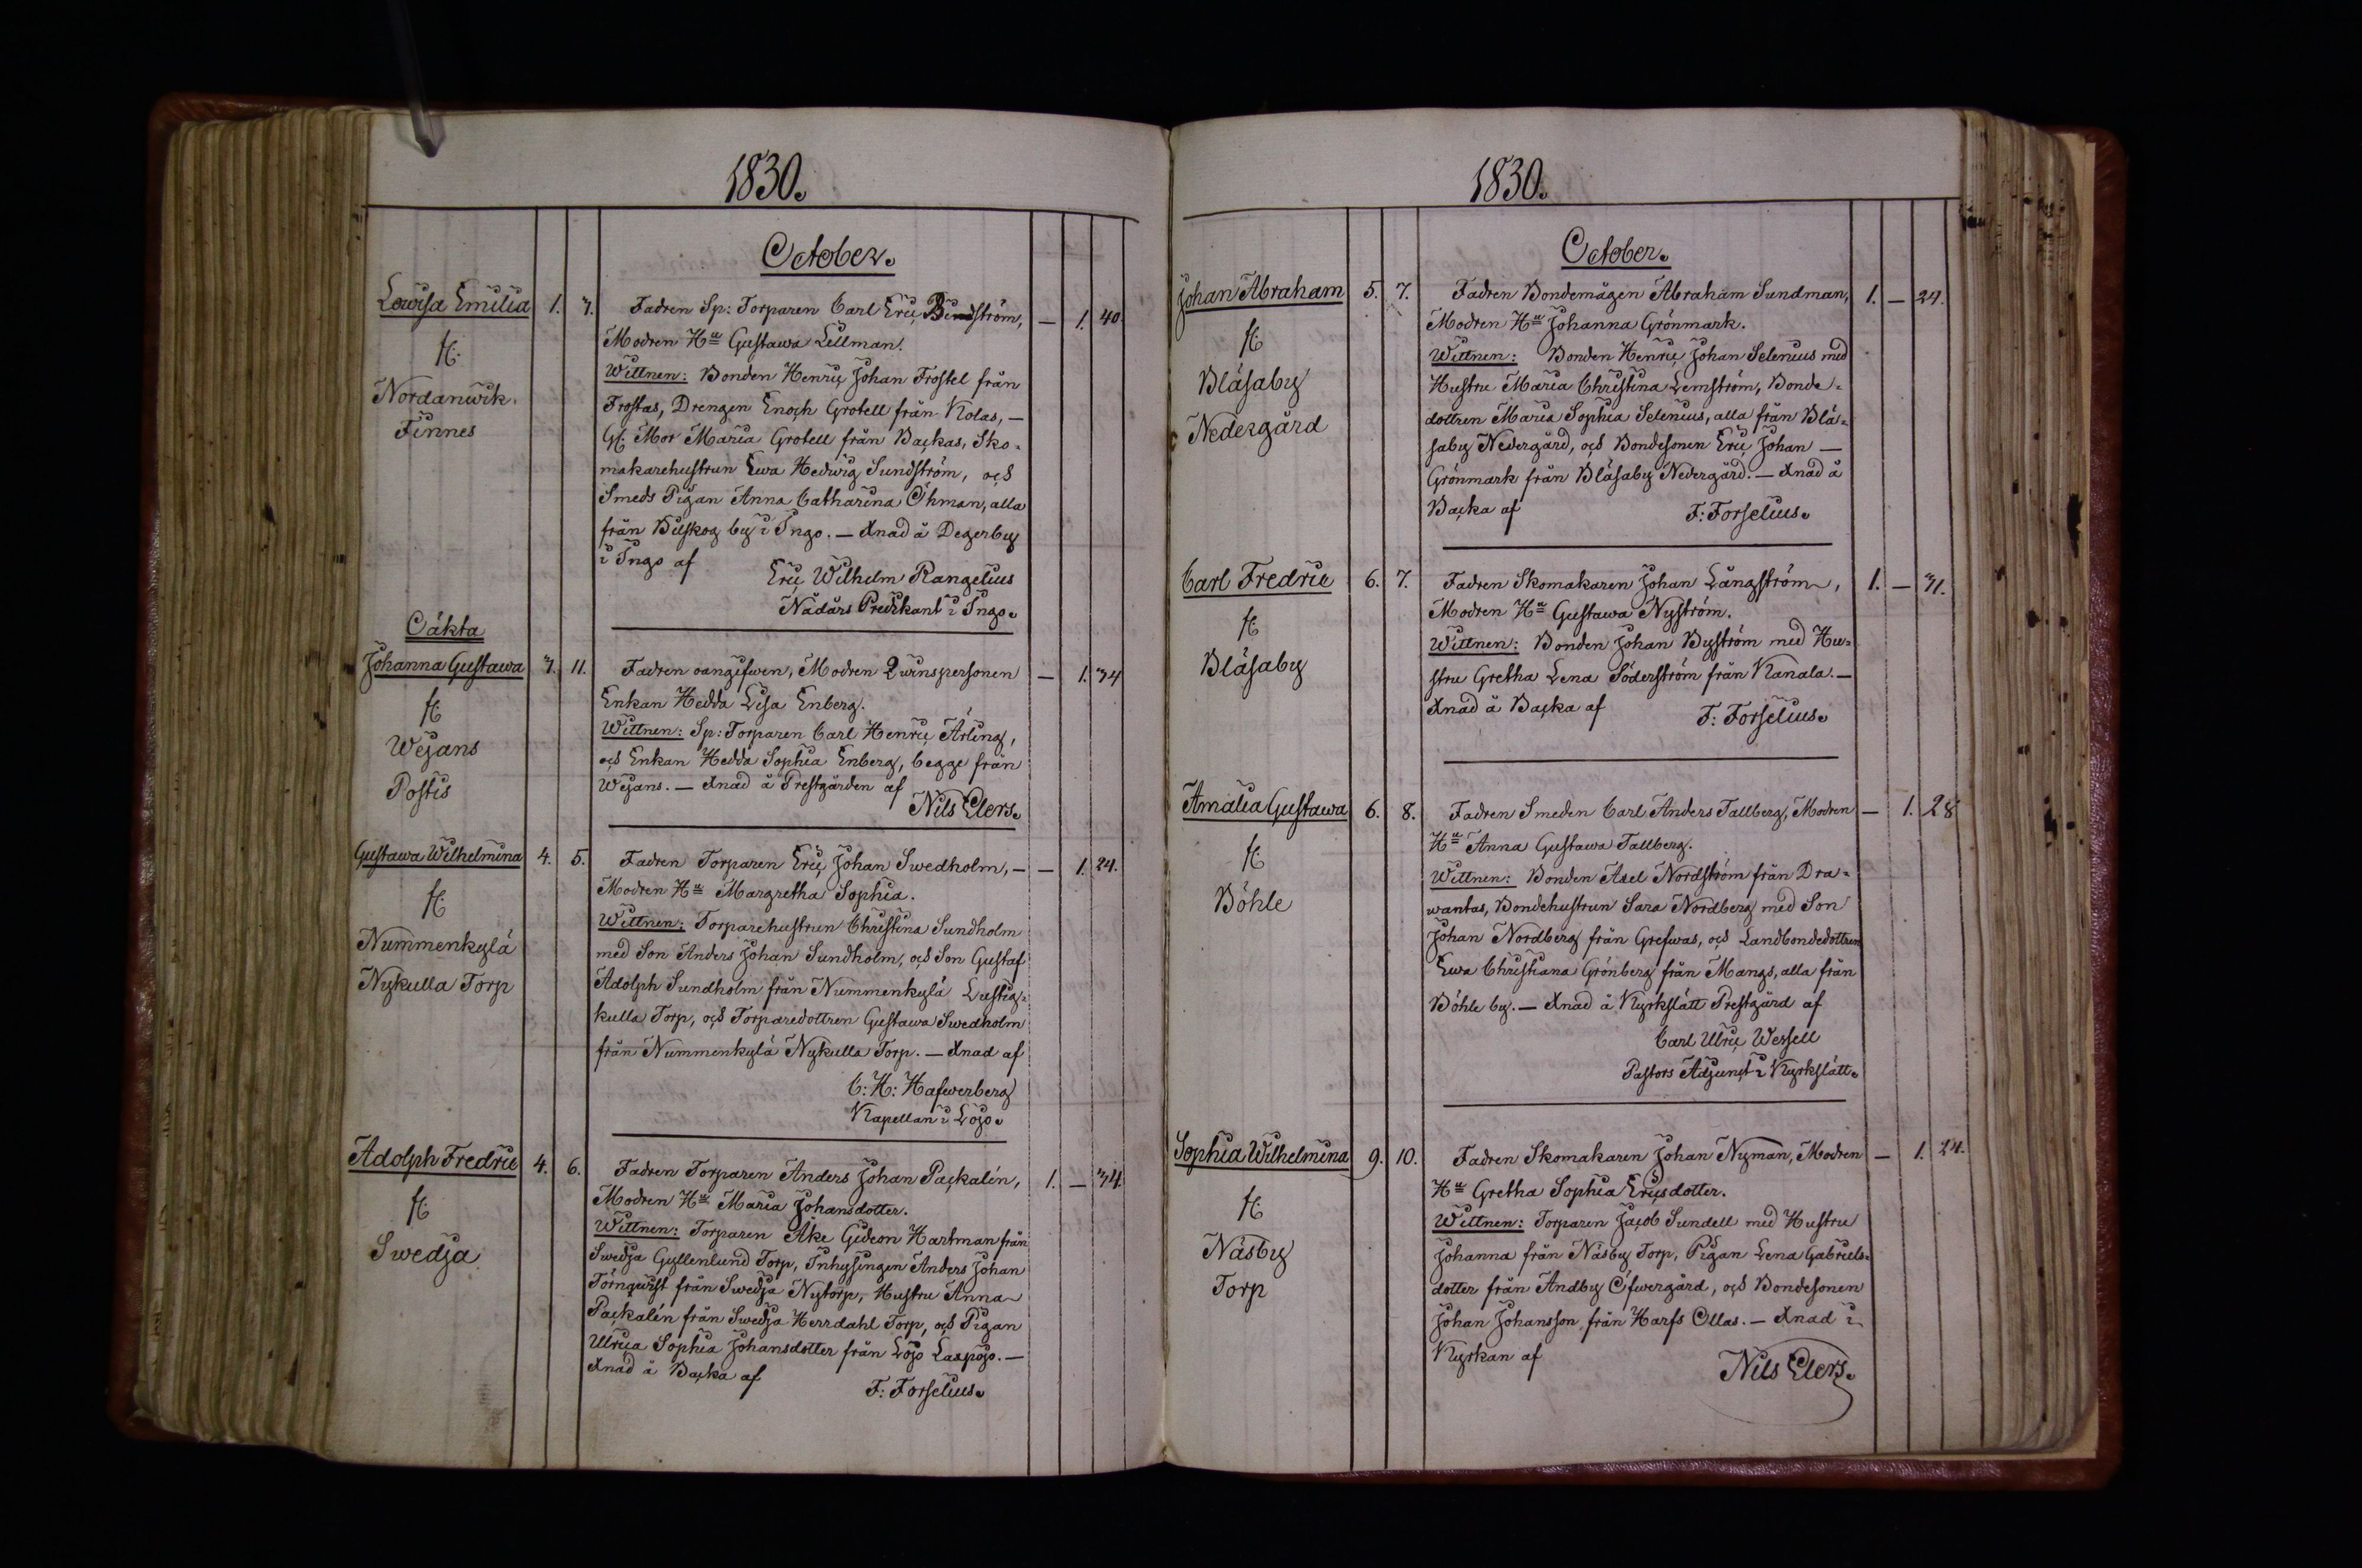 1830.
October.
Lowisa Emilia 1. 3. Fadren Sp: Torparen Carl Eric Bindström, — 1. 40.
ft. Modren H:u Gustawa Lillman.
Nordanwik Wittnen: Bonden Henric Johan Frostel från
Finnes Frostas, Drengen Enoch Grotell från Kolas, —
Gl: Mor Maria Grotell från Backas, Sko-
makarehustrun Ewa Hedwig Sundström, och
Smeds Pigan Anna Catharina Öhman, alla
från Bilskog by i Ingo. — Xnad å Degerby
i Ingo af
Eric Wilhelm Rangelius
Nådårs Predikant i Ingo.
Oäkta
Johanna Gustawa 3. 11. Fadren oangifwen, Modren Qwinspersonen — 1. 34
ft. Enkan Hedda Lisa Enberg.
Wejans Wittnen: Sp: Torparen Carl Henric Arling,
Postis och Enkan Hedda Sophia Enberg, begge från
Wejans. — Xnad å Prestgården af
Nils Elers.
Gustawa Wilhelmina 4. 5. Fadren Torparen Eric Johan Swedholm, — — 1. 24.
ft. Modren H:u Margretha Sophia.
Nummenkylä Wittnen: Torparehustrun Christina Sundholm
Nykulla Torp med Son Anders Johan Sundholm, och Son Gustaf
Adolph Sundholm från Nummenkylä Lustig-
kulla Torp, och Torparedottren Gustawa Swedholm
från Nummenkylä Nykulla Torp. — Xnad af
C: H: Hafwerberg
Kapellan i Lojo.
Adolph Fredric 4. 6. Fadren Torparen Anders Johan Packalén, 1. — 34
ft. Modren H:u Maria Johansdotter.
Swedja Wittnen: Torparen Åke Gideon Hartman från
Swedja Gyllenlund Torp, Inhysingen Anders Johan
Törnqwist från Swedja Nytorp, Hustru Anna
Packalén från Swedja Herrdahl Torp, och Pigan
Ulrica Sophia Johansdotter från Lojo Laxpojo. —
Xnad å Backa af
F: Forselius.
1830.
October.
Johan Abraham 5. 7. Fadren Bondemågen Abraham Sundman, 1. — 24.
ft. Modren H:u Johanna Grönmark.
Blåsaby Wittnen: Bonden Henric Johan Selenius med
Nedergård Hustru Maria Christina Lemström, Bonde-
dottren Maria Sophia Selenius, alla från Blå-
saby Nedergård, och Bondesonen Eric Johan —
Grönmark från Blåsaby Nedergård. — Xnad å
Backa af F: Forselius.
Carl Fredric 6. 7. Fadren Skomakaren Johan Långström, 1. — 31.
ft. Modren H:u Gustawa Nyström.
Blåsaby Wittnen: Bonden Johan Byström med Hu-
stru Gretha Lena Söderström från Kanala. —
Xnad å Backa af F: Forselius.
Amalia Gustawa 6. 8. Fadren Smeden Carl Anders Tallberg, Modren — 1. 28
ft. H:u Anna Gustawa Tallberg.
Böhle Wittnen: Bonden Axel Nordström från Dra-
wantas, Bondehustrun Sara Nordberg med Son
Johan Nordberg från Grefwas, och Landbondedottren
Ewa Christiana Grönberg från Mangs, alla från
Böhle by. — Xnad å Kyrkslätt Prestgård af
Carl Ulric Wessell
Pastors Adjunct i Kyrkslätt.
Sophia Wilhelmina 9. 10. Fadren Skomakaren Johan Nyman, Modren — 1. 24.
ft. H:u Gretha Sophia Ericsdotter.
Näsby Wittnen: Torparen Jacob Sundell med Hustru
Torp Johanna från Näsby Torp, Pigan Lena Gabriels-
dotter från Andby Öfwergård, och Bondesonen
Johan Johansson från Harfs Ollas. — Xnad i
Kyrkan af
Nils Elers.